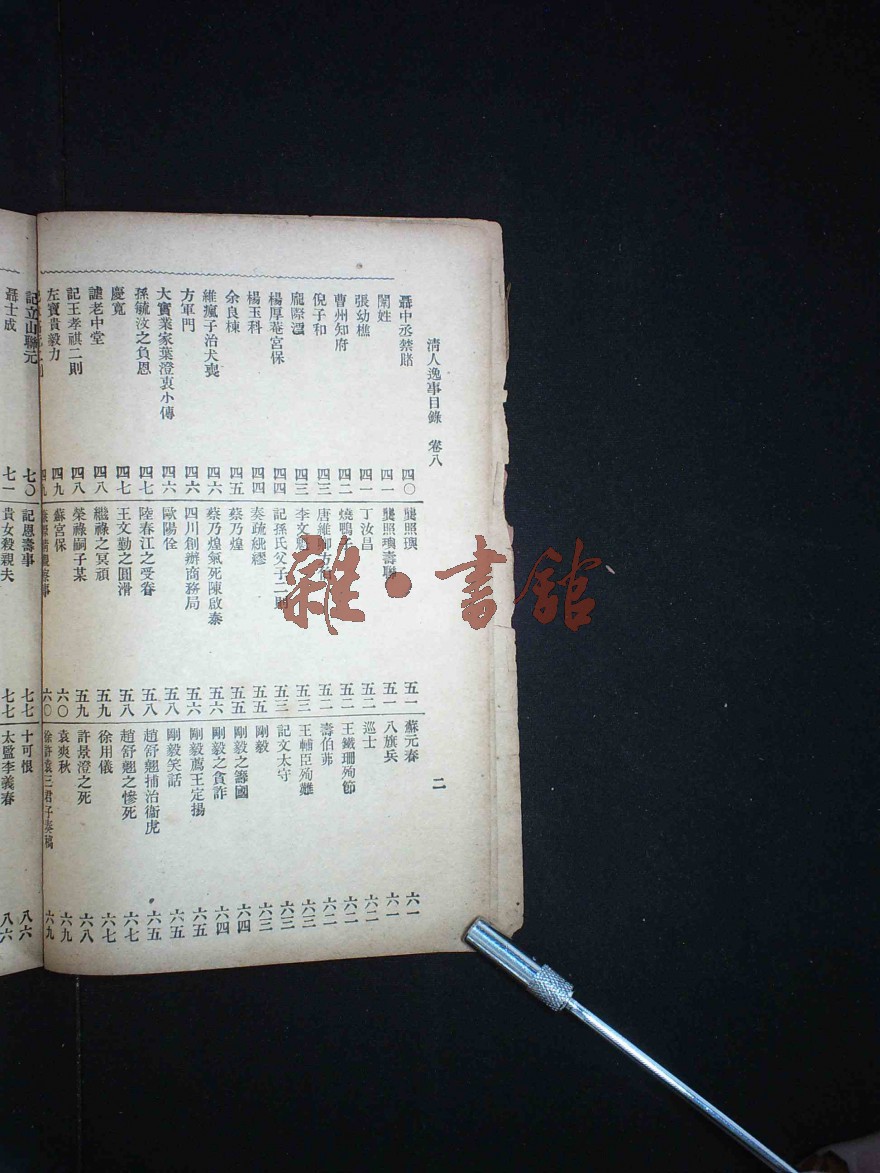 清人逸事目錄 卷八
二
聶中丞禁賭 四〇
闈姓 四一
張幼樵 四一
曹州知府 四二
倪子和 四三
龐際雲 四三
楊厚菴宮保 四四
楊玉科 四四
余良棟 四五
維瘋子治犬喪 四六
方軍門 四六
大實業家葉澄衷小傳 四六
孫毓汶之負恩 四七
慶寬 四七
謔老中堂 四八
記王孝祺二則 四八
左寶貴毅力 四九
四九
龔照璵 五一
龔照璵壽聯 五一
丁汝昌 五二
燒鴨 五二
唐維卿方伯 五二
李文 五三
記孫氏父子二則 五三
奏疏紕繆 五五
蔡乃煌 五五
蔡乃煌氣死陳啟泰 五六
四川創辦商務局 五六
歐陽佺 五八
陸春江之受眷 五八
王文勤之圓滑 五八
繼祿之冥頑 五九
榮祿嗣子某 五九
蘇宮保 六〇
六〇
蘇元春 六一
八旗兵 六一
巡士 六二
王鐵珊殉節 六二
壽伯茀 六二
王輔臣殉難 六三
記文太守 六三
剛毅 六三
剛毅之籌國 六四
剛毅之貪詐 六四
剛毅薦王定揚 六五
剛毅笑話 六五
趙舒翹捕治衙虎 六五
趙舒翹之慘死 六七
徐用儀 六七
許景澄之死 六八
袁爽秋 六九
徐許袁三君子奏稿 六九
記立山聯元 七〇
聶士成 七一
記恩壽事 七七
貴女殺親夫 七七
十可恨 八六
太監李義春 八六
雜·書館